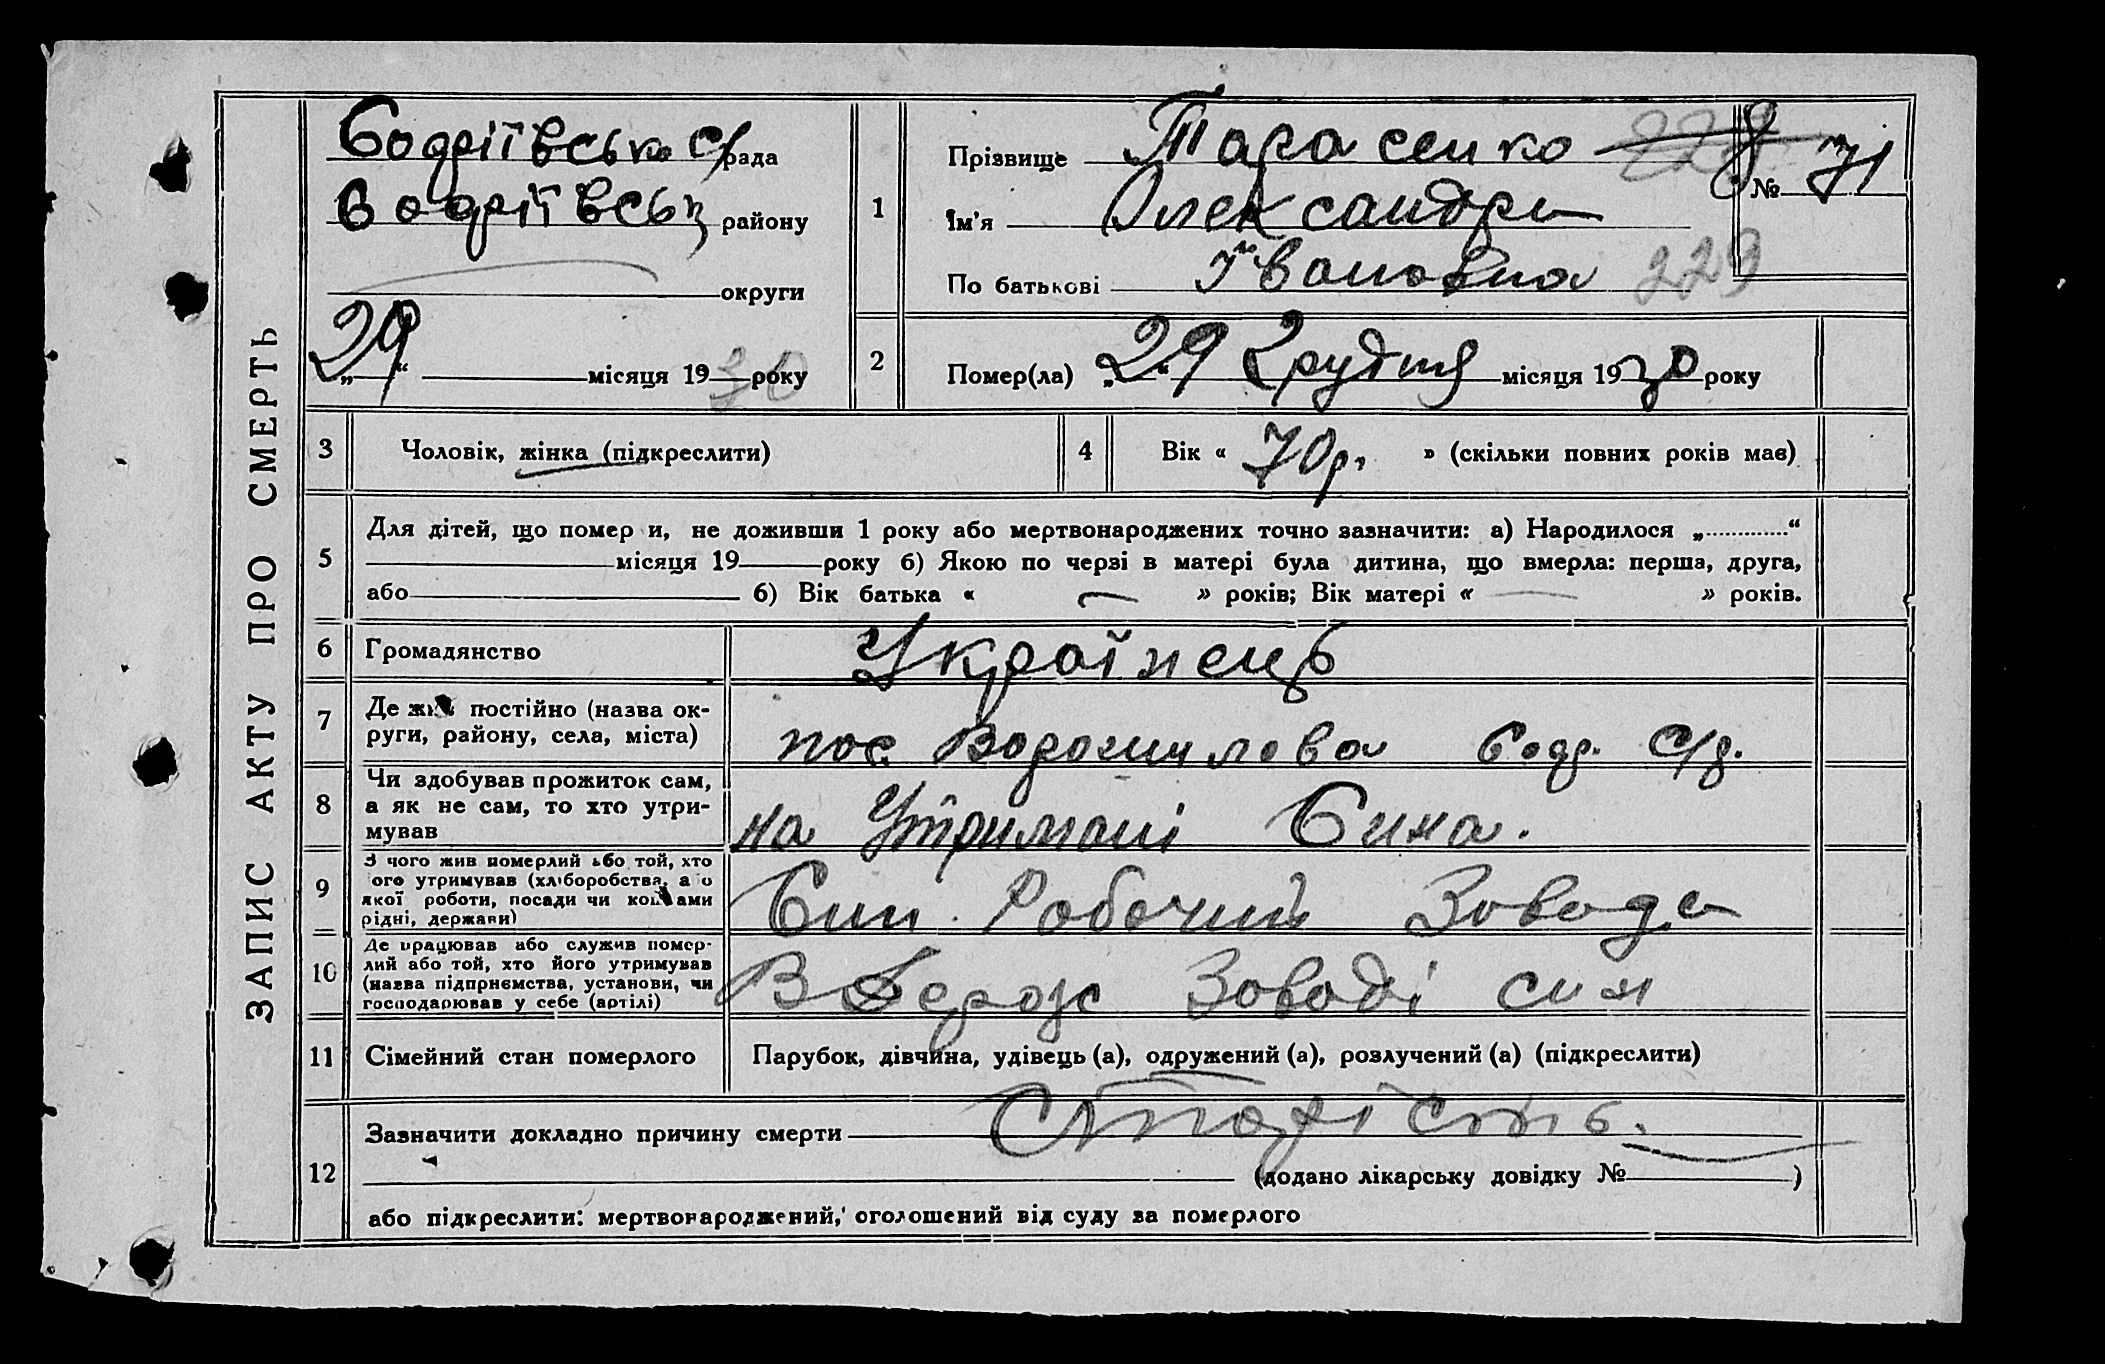 ЗАПИС АКТУ ПРО СМЕРТЬ
рада
району
округи
„29“ місяця 1930 року
1
Прізвище Тарасенко
Ім'я Олександра
По батькові Івановна 229
№ 71
2
Помер(ла) „29“ Грудня місяця 1930 року
3 Чоловік, жінка (підкреслити)
4 Вік « 70 р. » (скільки повних років має)
5
Для дітей, що помер и, не доживши 1 року або мертвонароджених точно зазначити: а) Народилося „.............“
місяця 19 року б) Якою по черзі в матері була дитина, що вмерла: перша, друга,
або б) Вік батька « — » років; Вік матері « — » років.
6 Громадянство Українець
7 Де жив постійно (назва ок-
руги, району, села, міста)
пос Ворошилова с/р.
8 Чи здобував прожиток сам,
а як не сам, то хто утри-
мував
на Утримані Сина.
9 З чого жив померлий або той, хто
ого утримував (хліборобства, а о
якої роботи, посади чи коштами
рідні, держави)
Син Робочий Завода
10 Де працював або служив помер-
лий або той, хто його утримував
(назва підприємства, установи, чи
господарював у себе (артілі)
В Заводі син
11 Сімейний стан померлого
Парубок, дівчина, удівець (а), одружений (а), розлучений (а) (підкреслити)
12
Зазначити докладно причину смерти Старість.
(додано лікарську довідку № )
або підкреслити: мертвонароджений, оголошений від суду за померлого